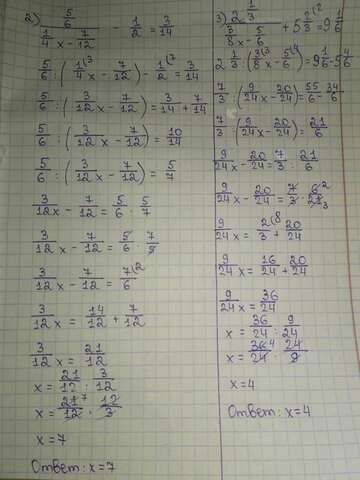 2) (5/6)/(1/4 x - 7/12) - 1/2 = 3/14
5/6 : (1/4 (3 x - 7/12) - 1/2 (7 = 3/14
5/6 : (3/12 x - 7/12) = 3/14 + 7/14
5/6 : (3/12 x - 7/12) = 10/14
5/6 : (3/12 x - 7/12) = 5/7
3/12 x - 7/12 = 5/6 : 5/7
3/12 x - 7/12 = 5/6 · 7/5
3/12 x - 7/12 = 7/6 (2
3/12 x = 14/12 + 7/12
3/12 x = 21/12
x = 21/12 : 3/12
x = 21 7/12 · 12/3
x = 7
Ответ: x = 7
3) (2 1/3)/(3/8 x - 5/6) + 5 2/3 (2 = 9 1/6
2 1/3 : (3/8 (3 x - 5/6 (4) = 9 1/6 - 5 4/6
7/3 : (9/24 x - 20/24) = 55/6 - 34/6
7/3 : (9/24 x - 20/24) = 21/6
9/24 x - 20/24 = 7/3 : 21/6
9/24 x - 20/24 = 7/3 · 6 2/21 3
9/24 x = 2/3 (8 + 20/24
9/24 x = 16/24 + 20/24
9/24 x = 36/24
x = 36/24 : 9/24
x = 36 4/24 · 24/9
x = 4
Ответ: x = 4